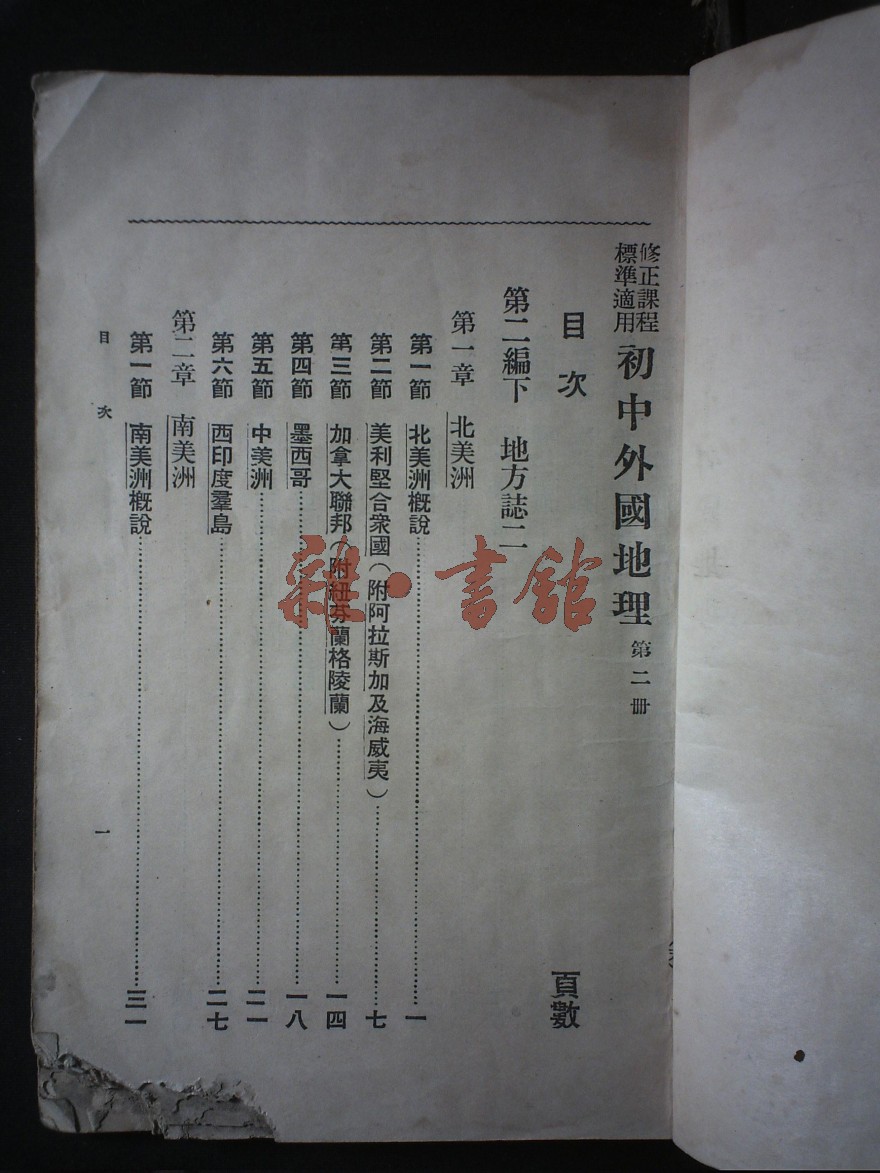 修正課程
標準適用
初中外國地理 第二册
目次 頁數
第二編下 地方誌二
第一章 北美洲
第一節 北美洲概說 一
第二節 美利堅合衆國(附阿拉斯加及海威夷) 七
第三節 加拿大聯邦(附紐芬蘭格陵蘭) 一四
第四節 墨西哥 一八
第五節 中美洲 二一
第六節 西印度羣島 二七
第二章 南美洲
第一節 南美洲概說 三一
目次 一
雜·書館